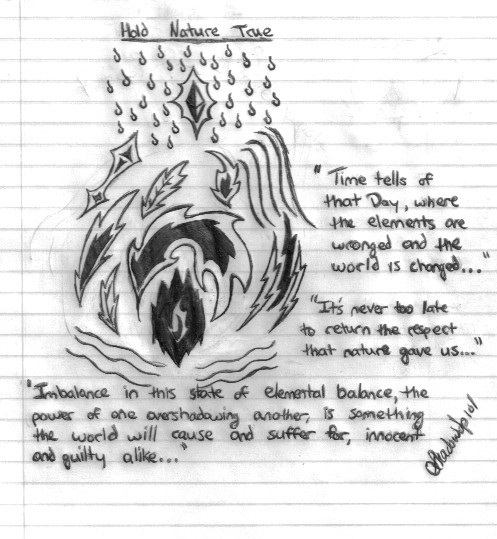 Hold Nature True
"Time tells of
that Day, where
the elements are
wronged and the
world is changed..."
"It's never too late
to return the respect
that nature gave us..."
"Imbalance in this state of elemental balance, the
power of one overshadowing another, is something
the world will cause and suffer for, innocent
and guilty alike..."